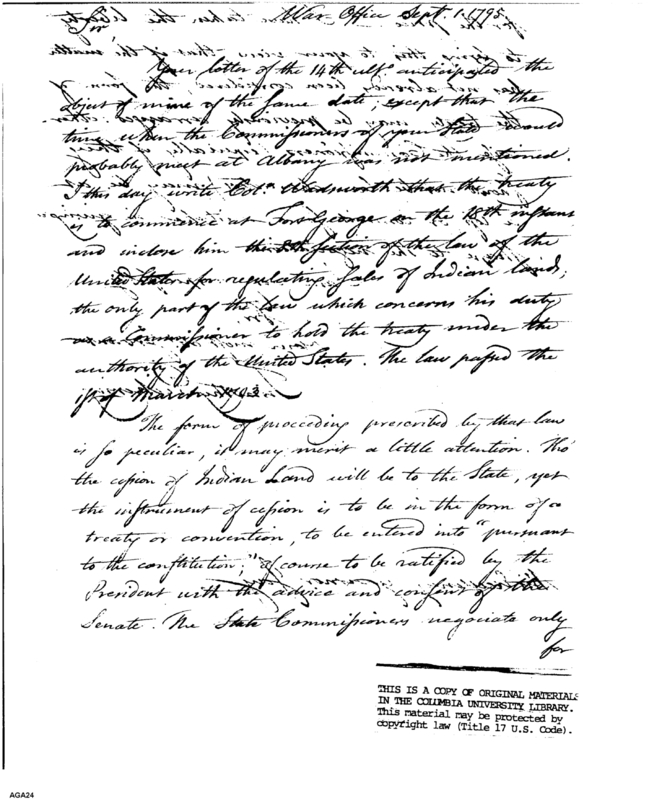 War Office Sept. 1. 1795.
Sir
Your letter of the 14th ult.o anticipated the
object of mine of the same date, except that the
time when the Commissioners of your State would
probably meet at Albany was not mentioned.
I this day write Col.o Wadsworth that the treaty
is to commence at Fort George on the 18th instant
and inclose him the 8th section of the law of the
United States for regulating sales of Indian lands;
the only part of the law which concerns his duty
as a Commissioner to hold the treaty under the
authority of the United States. The law passed the
1st of March
The form of proceeding prescribed by that law
is so peculiar, it may merit a little attention. Tho'
the cession of Indian Land will be to the State, yet
the instrument of cession is to be in the form of a
treaty or convention, to be entered into "pursuant
to the constitution;" of course to be ratified by the
President with the advice and consent of the
Senate. The State Commissioners negociate only
for
THIS IS A COPY OF ORIGINAL MATERIALS
IN THE COLUMBIA UNIVERSITY LIBRARY.
This material may be protected by
copyright law (Title 17 U.S. Code).
AGA24